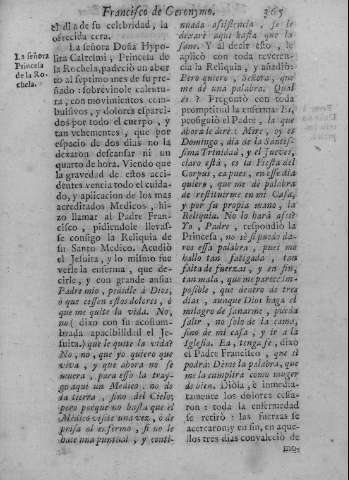 Francisco de Geronymo. 365
el dia de su celebridad, la
ofrecida cera.
La señora
Princesa
de la Ro-
chela.
La señora Doña Hypo-
lita Calrelmi, Princesa de
la Rochela, padeciò un abor
to al septimo mes de su pre-
ñado: sobrevinole calentu-
ra, con movimientos com-
bulsivos, y dolores esparci-
dos por todo el cuerpo, y
tan vehementes, que por
espacio de dos dias no la
dexaron descansar ni un
quarto de hora. Viendo que
la gravedad de estos acci-
dentes vencia todo el cuida-
do, y aplicacion de los mas
acreditados Medicos, hi-
zo llamar al Padre Fran-
cisco, pidiendole llevas-
se consigo la Reliquia de
su Santo Medico. Acudiò
el Jesuita, y lo mismo fue
verle la enferma, que de-
cirle, y con grande ansia:
Padre mio, pidale à Dios,
ò que cessen estos dolores, ò
que me quite la vida. No,
no (dixo con su acostum-
brada apacibilidad el Je-
suita) que le quite la vida?
No, no, que yo quiero que
viva, y que ahora no se
muera, para esso la tray-
go aqui un Medico no de
la tierra, sino del Cielo;
pero porque no basta que el
Medico visite una vez, ò de
prisa al enfermo, si no le
hace una puntual, y conti-
nuada asistencia, se le
dexarè aqui hasta que la
sane. Y al decir esto, le
aplicò con toda reveren-
cia la Reliquia, y añadiò:
Pero quiero, Señora, que
me dè una palabra. Qual
es? Preguntò con toda
promptitud la enferma: Ea,
prosiguiò el Padre, la que
ahora le dirè: Mire, oy es
Domingo, dia de la Santis-
sima Trinidad, y el Jueves,
claro està, es la Fiesta del
Corpus, ea pues, en esse dia
quiero, que me dè palabra
de restituirme en mi Casa,
y por su propia mano, la
Reliquia. No lo harà assi?
Yo, Padre, respondiò la
Princesa, no sè si puedo da-
ros essa palabra, pues me
hallo tan fatigada, tan
falta de fuerzas, y en fin,
tan mala, que me parece im-
possible, que dentro de tres
dias, aunque Dios haga el
milagro de sanarme, pueda
salir, no solo de la cama,
sino de mi casa, y ir à la
Iglesia. Ea, tenga fe, dixo
el Padre Francisco, que si
podrà: Deme la palabra, que
me la cumplirà como muger
de bien. Diòla, è inmedia-
tamente los dolores cessa-
ron: toda la enfermedad
se retirò: las fuerzas se
acercaron, y en fin, en aque-
llos tres dias convaleciò de